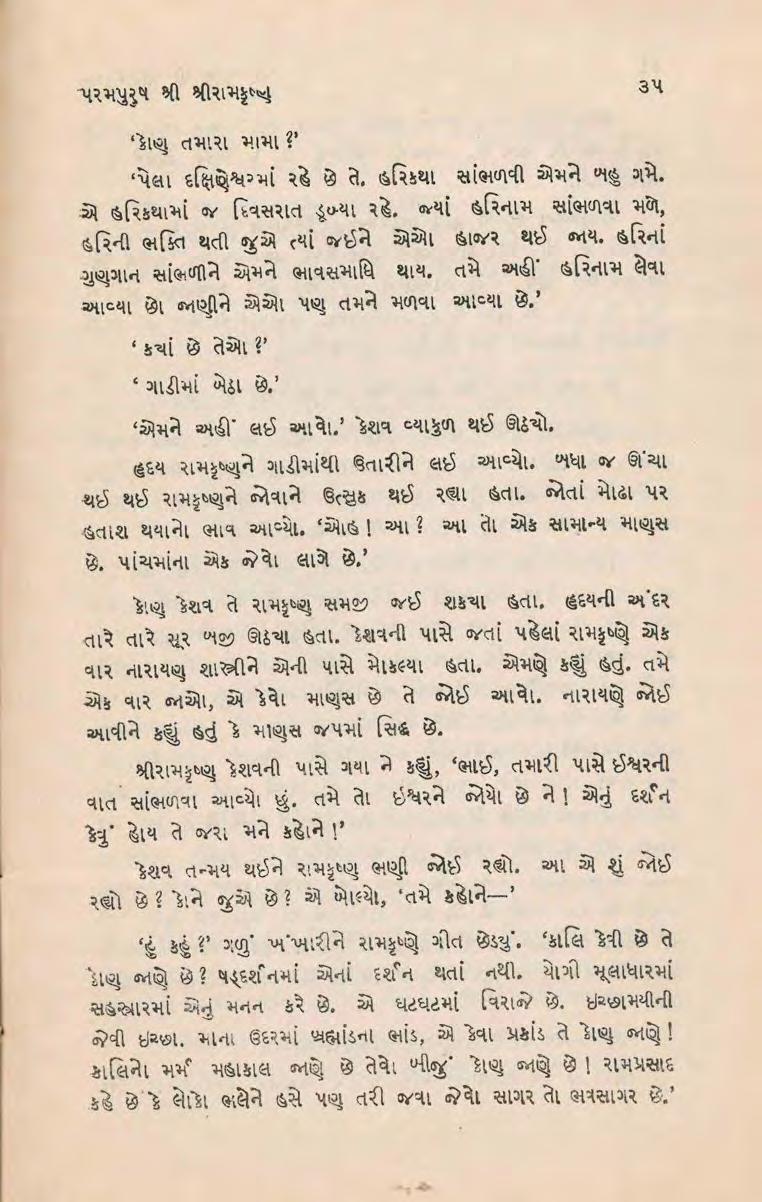 પરમપુરુષ શ્રી શ્રીરામકૃષ્ણ ૩૫
‘કોણ તમારા મામા ?’
‘પેલા દક્ષિણેશ્વરમાં રહે છે તે. હરિકથા સાંભળવી એમને બહુ ગમે.
એ હરિકથામાં જ દિવસરાત ડૂબ્યા રહે. જ્યાં હરિનામ સાંભળવા મળે,
હરિની ભક્તિ થતી જુએ ત્યાં જઈને એઓ હાજર થઈ જાય. હરિનાં
ગુણગાન સાંભળીને એમને ભાવસમાધિ થાય. તમે અહીં હરિનામ લેવા
આવ્યા છો જાણીને એઓ પણ તમને મળવા આવ્યા છે.’
‘ ક્યાં છે તેઓ ?’
‘ ગાડીમાં બેઠા છે.’
‘એમને અહીં લઈ આવો.’ કેશવ વ્યાકુળ થઈ ઊઠ્યો.
હૃદય રામકૃષ્ણને ગાડીમાંથી ઉતારીને લઈ આવ્યો. બધા જ ઊંચા
થઈ થઈ રામકૃષ્ણને જોવાને ઉત્સુક થઈ રહ્યા હતા. જોતાં મોઢા પર
હતાશ થયાનો ભાવ આવ્યો. ‘ઓહ ! આ ? આ તો એક સામાન્ય માણસ
છે. પાંચમાંના એક જેવો લાગે છે.’
કોણ કેશવ તે રામકૃષ્ણ સમજી જઈ શક્યા હતા. હૃદયની અંદર
તારે તારે સૂર બજી ઊઠ્યા હતા. કેશવની પાસે જતાં પહેલાં રામકૃષ્ણે એક
વાર નારાયણ શાસ્ત્રીને એની પાસે મોકલ્યા હતા. એમણે કહ્યું હતું. તમે
એક વાર જાઓ, એ કેવો માણસ છે તે જોઈ આવો. નારાયણે જોઈ
આવીને કહ્યું હતું કે માણસ જપમાં સિદ્ધ છે.
શ્રીરામકૃષ્ણ કેશવની પાસે ગયા ને કહ્યું, ‘ભાઈ, તમારી પાસે ઈશ્વરની
વાત સાંભળવા આવ્યો છું. તમે તો ઇશ્વરને જોયો છે ને ! એનું દર્શન
કેવું હોય તે જરા મને કહોને !’
કેશવ તન્મય થઈને રામકૃષ્ણ ભણી જોઈ રહ્યો. આ એ શું જોઈ
રહ્યો છે ? કોને જુએ છે ? એ બોલ્યો, ‘તમે કહોને—’
‘હું કહું ?’ ગળું ખંખારીને રામકૃષ્ણે ગીત છેડ્યું. ‘કાલિ કેવી છે તે
કોણ જાણે છે ? ષડ્દર્શનમાં એનાં દર્શન થતાં નથી. યોગી મૂલાધારમાં
સહસ્ત્રારમાં એનું મનન કરે છે. એ ઘટઘટમાં વિરાજે છે. ઇચ્છામયીની
જેવી ઇચ્છા. માના ઉદરમાં બ્રહ્માંડના ભાંડ, એ કેવા પ્રકાંડ તે કોણ જાણે !
કાલિનો મર્મ મહાકાલ જાણે છે તેવો બીજું કોણ જાણે છે ! રામપ્રસાદ
કહે છે કે લોકો ભલેને હસે પણ તરી જવા જેવો સાગર તો ભવસાગર છે.’